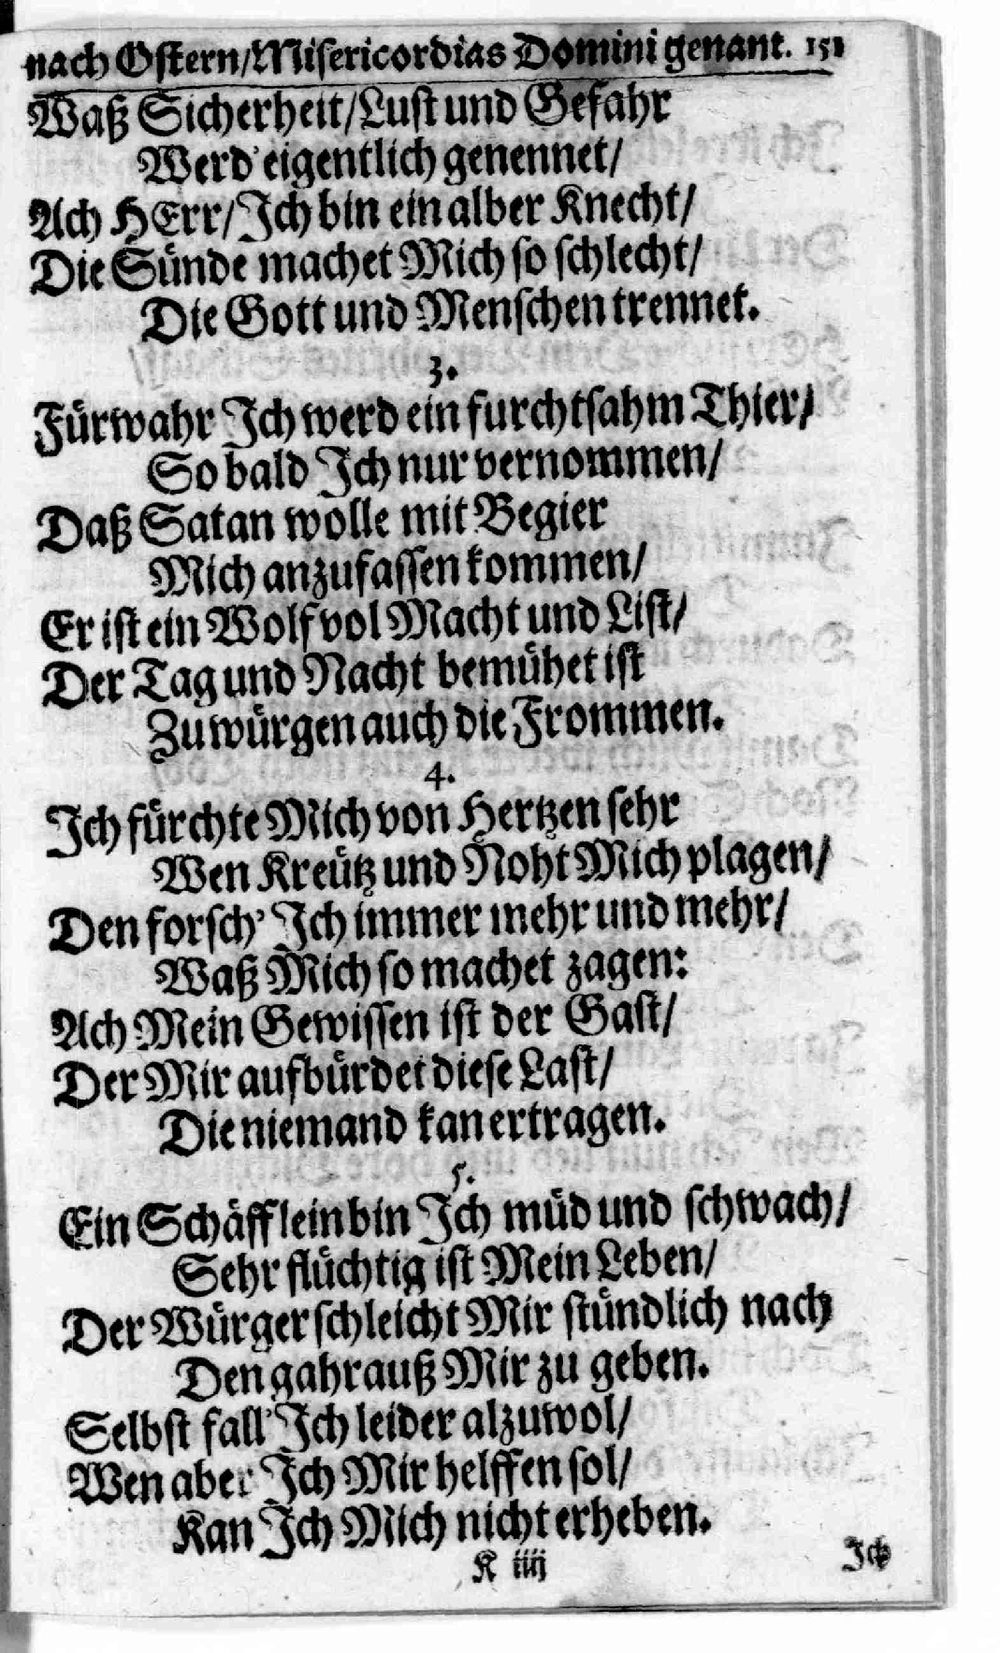 nach Ostern/Misericordias Domini genant. 151
Waß Sicherheit/Lust und Gefahr
Werd' eigentlich genennet/
Ach HErr/Ich bin ein alber Knecht/
Die Sünde machet Mich so schlecht/
Die Gott und Menschen trennet.
3.
Fürwahr Ich werd ein furchtsahm Thier/
So bald Ich nur vernommen/
Daß Satan wolle mit Begier
Mich anzufassen kommen/
Er ist ein Wolf vol Macht und List/
Der Tag und Nacht bemühet ist
Zu würgen auch die Frommen.
4.
Ich fürchte Mich von Hertzen sehr
Wen Kreütz und Noht Mich plagen/
Den forsch' Ich immer mehr und mehr/
Waß Mich so machet zagen:
Ach Mein Gewissen ist der Gast/
Der Mir aufbürdet diese Last/
Die niemand kan ertragen.
5.
Ein Schäfflein bin Ich müd und schwach/
Sehr flüchtig ist Mein Leben/
Der Würger schleicht Mir stündlich nach
Den gahrauß Mir zu geben.
Selbst fall' Ich leider alzuwol/
Wen aber Ich Mir helffen sol/
Kan Ich Mich nicht erheben.
K iiij
Ich